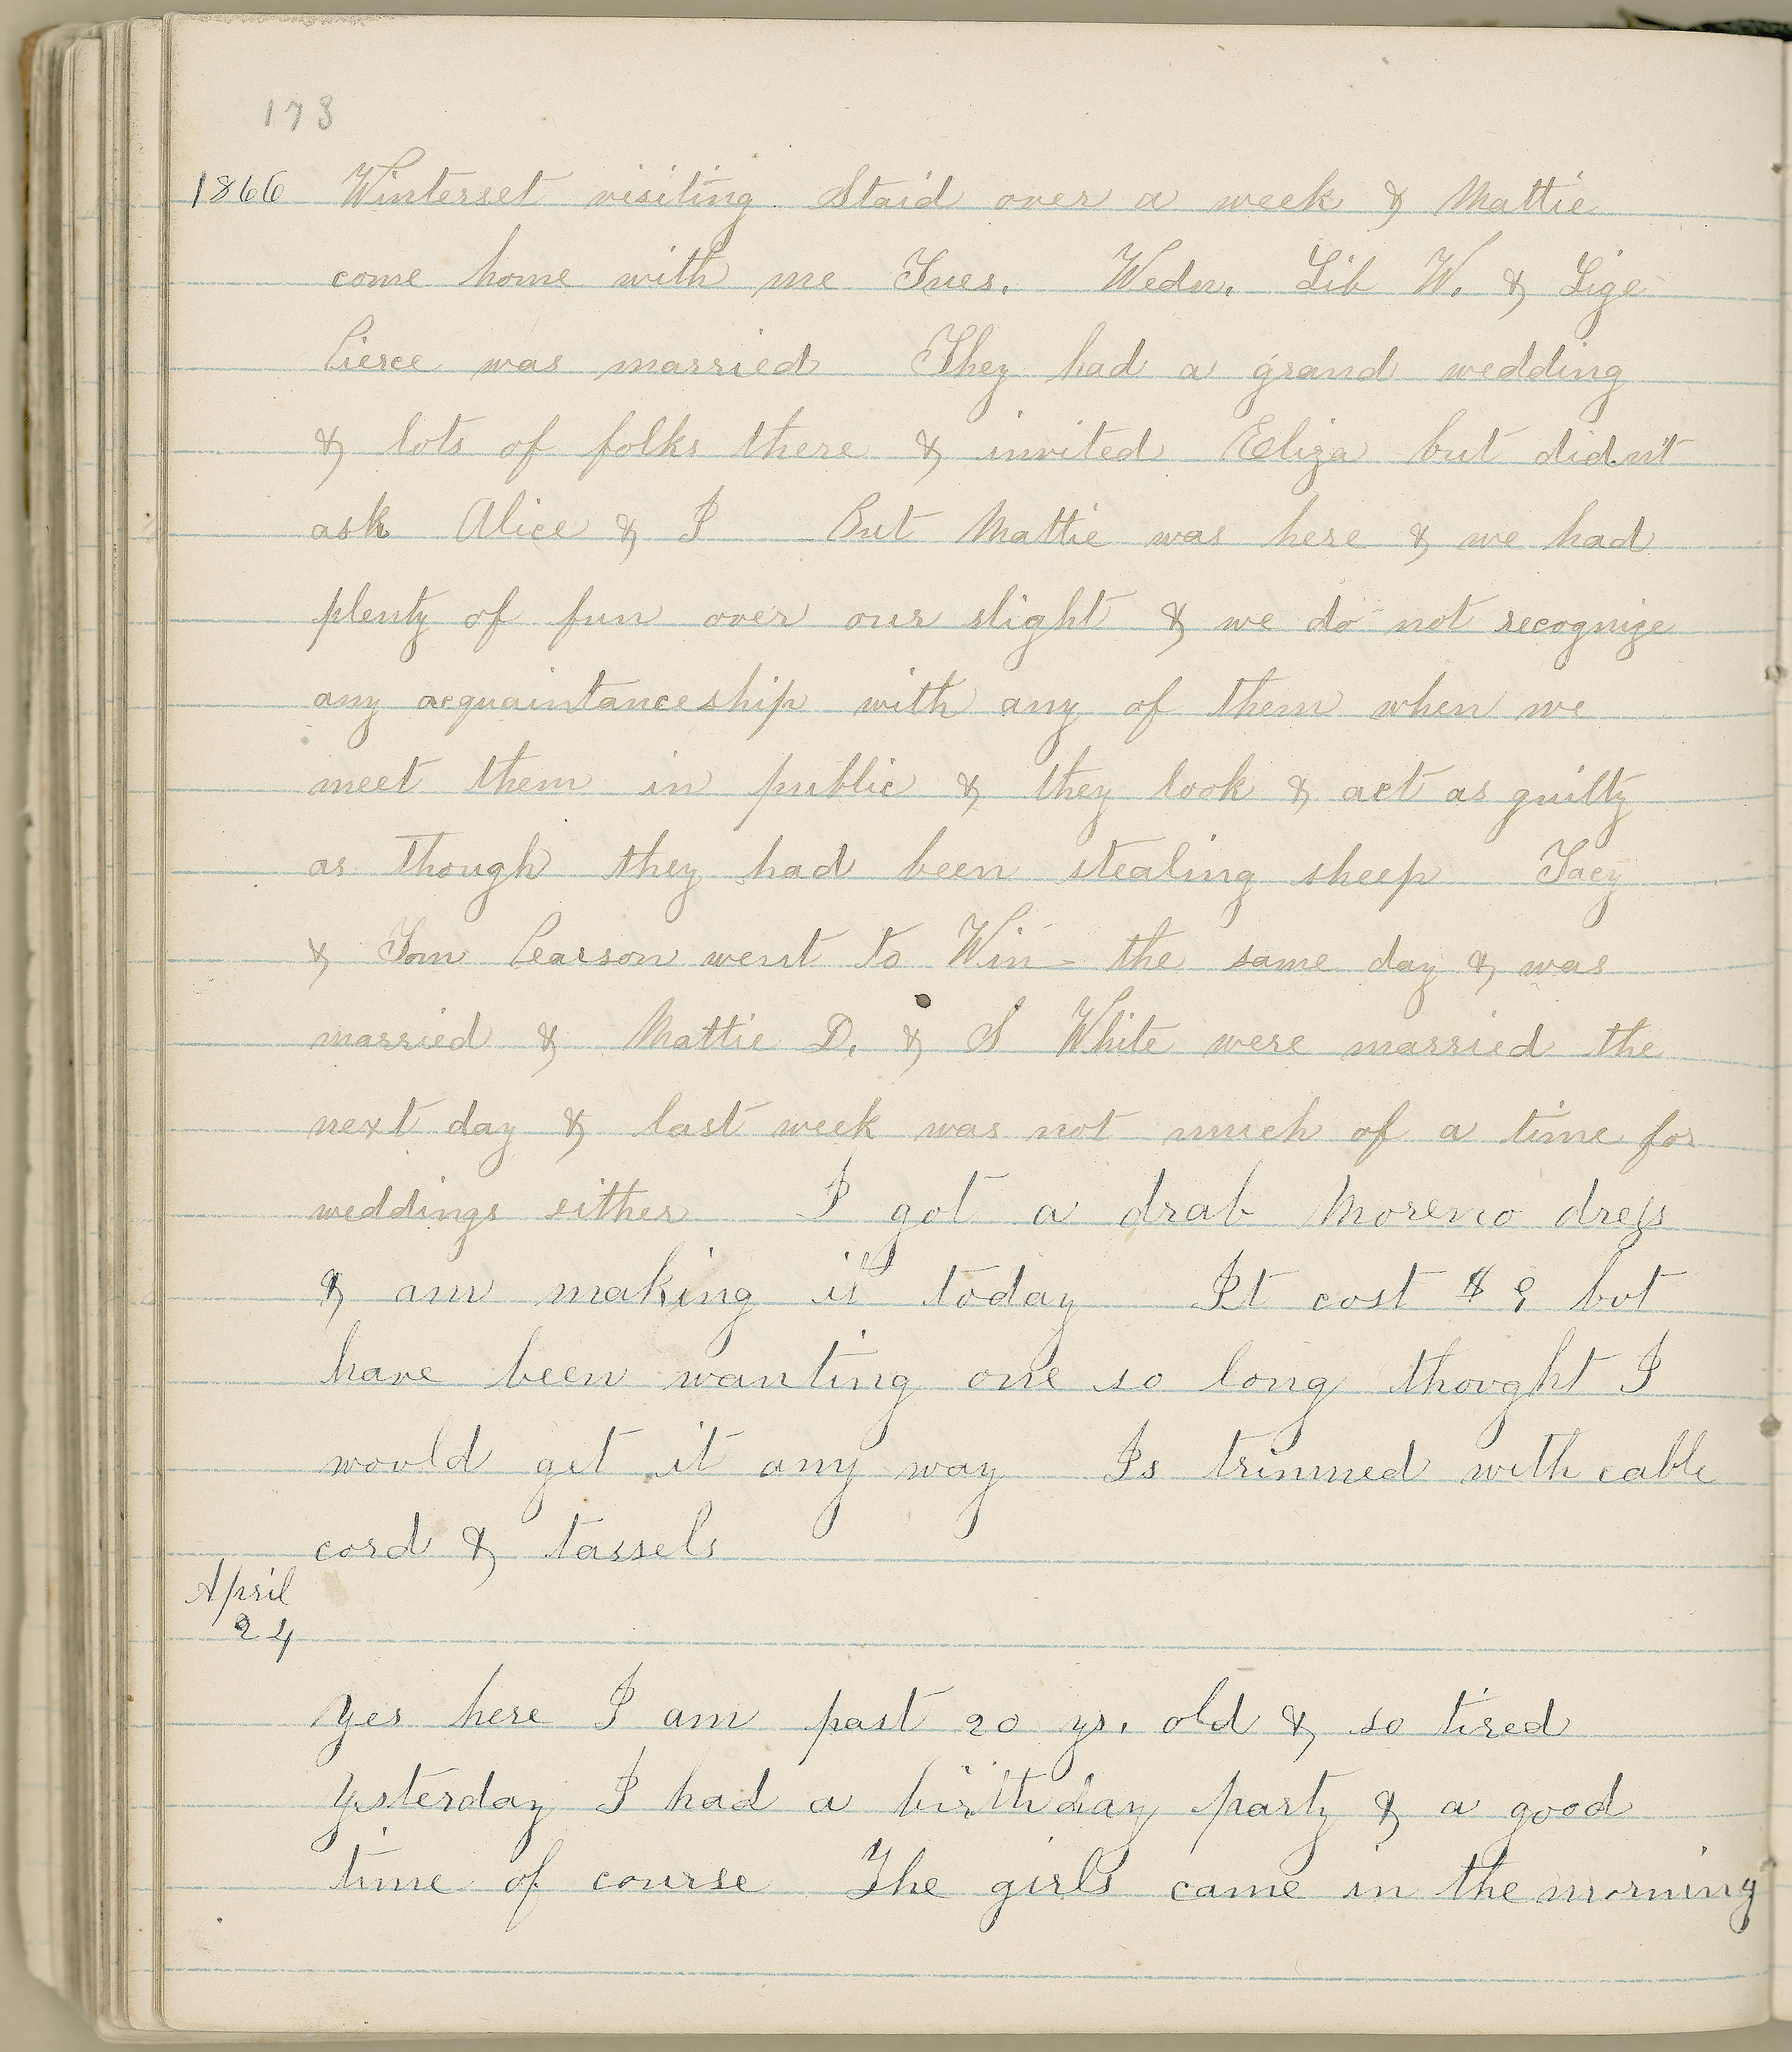 173
1866 Winterset visiting. Staid over a week & Mattie
come home with me Tues. Wedn. Lib W. & Lige
Pierce was married They had a grand wedding
& lots of folks there & invited Eliza but didn't
ask Alice & I But Mattie was here & we had
plenty of fun over our slight & we do not recognize
any acquaintanceship with any of them when we
meet them in public & they look & act as guilty
as though they had been stealing sheep Tacy
& Tom Pearson went to Win- the same day & was
married & Mattie D. & S White were married the
next day & last week was not much of a time for
weddings either I got a drab Moreno dress
& am making it today It cost $9 but
have been wanting one so long thought I
would get it any way Is trimmed with cable
cord & tassels
April
24
Yes here I am past 20 ys. old & so tired
Yesterday I had a birthday party & a good
time of course The girls came in the morning